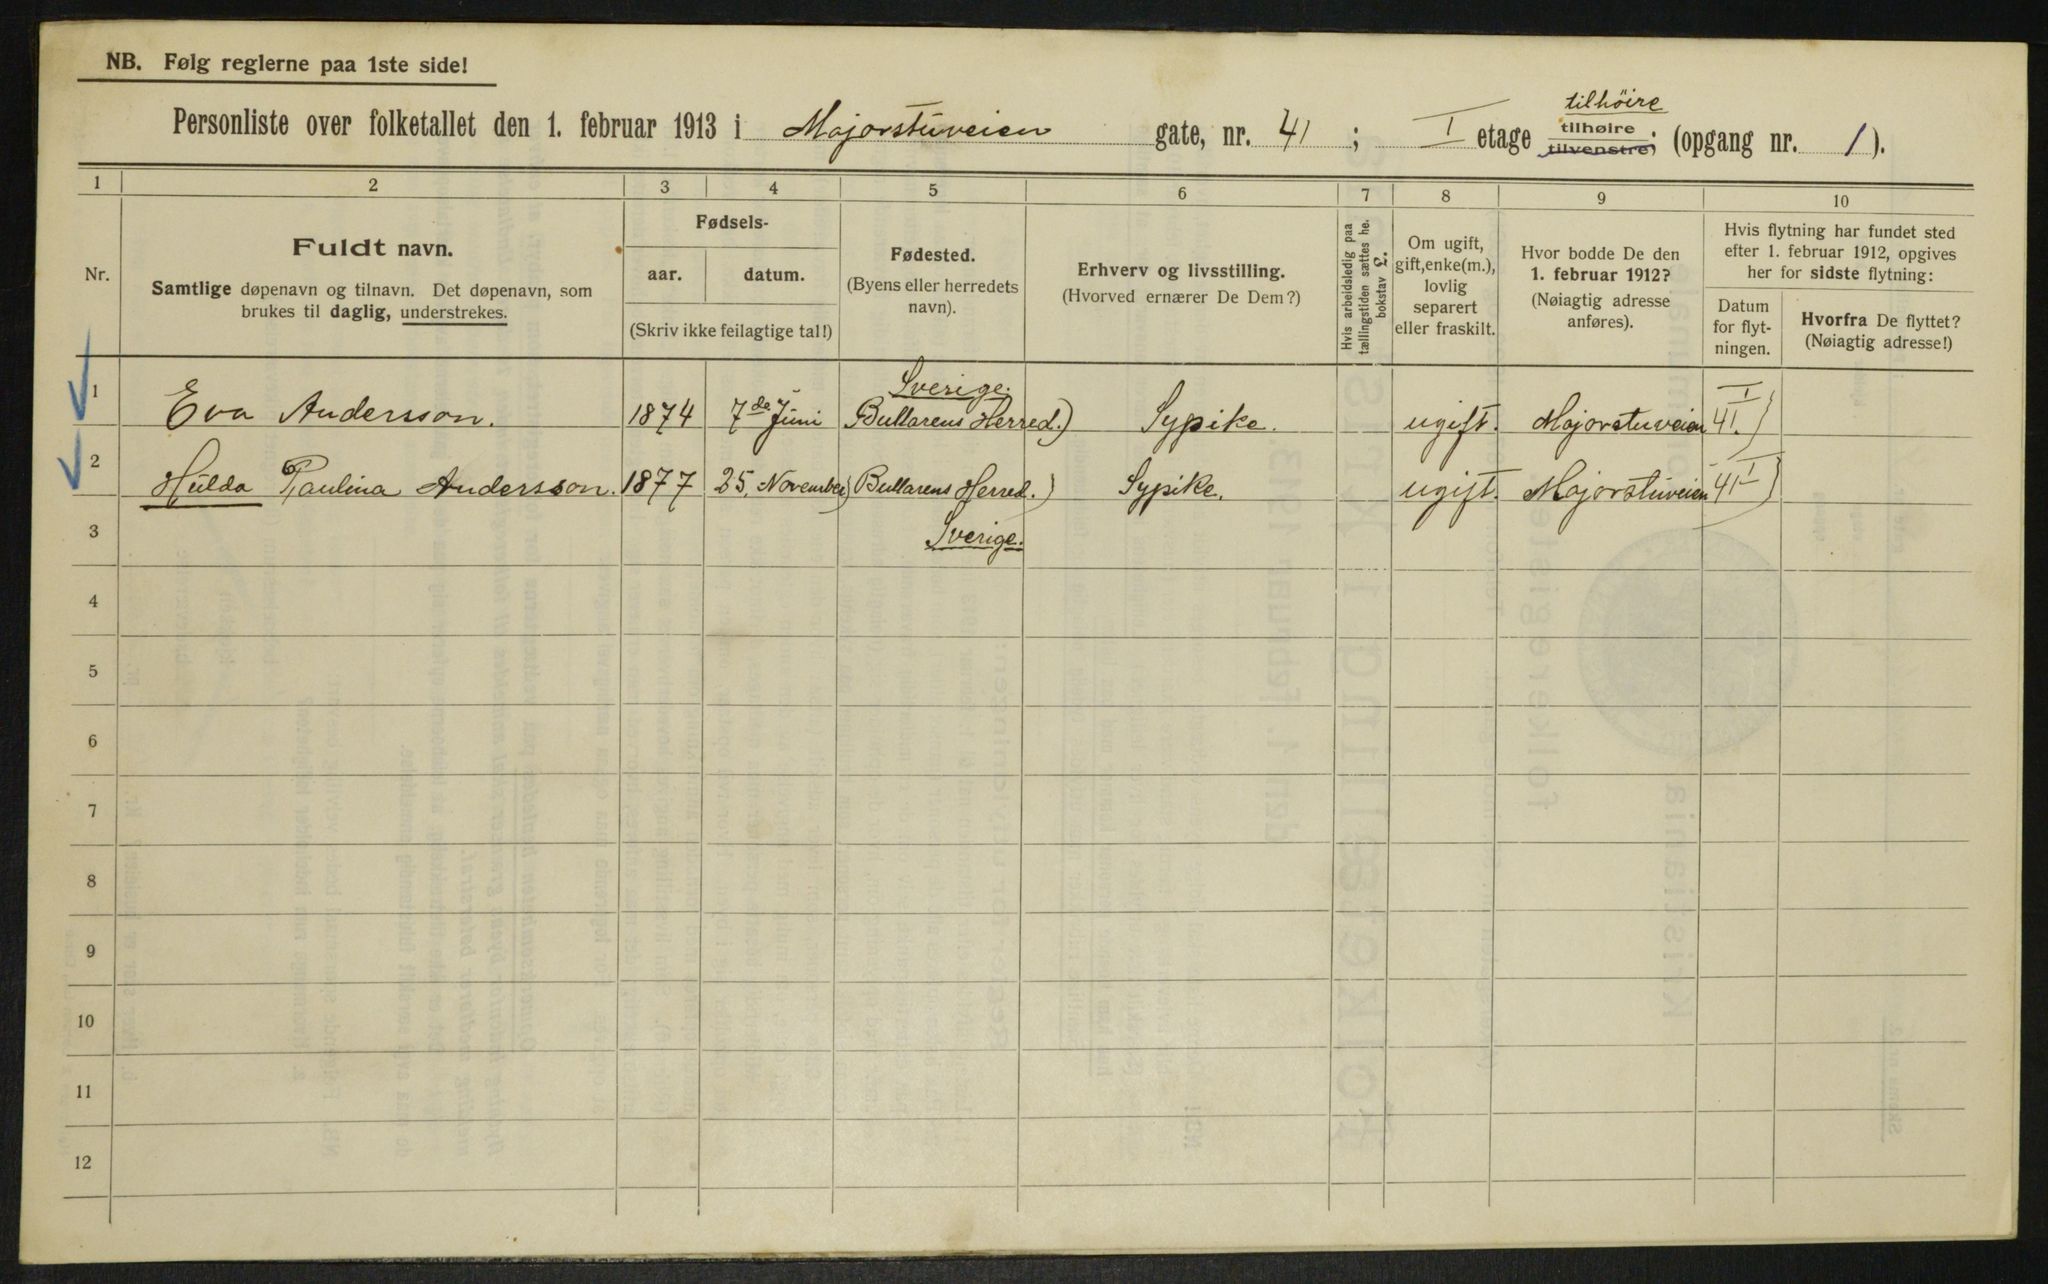 NB. Følg reglerne paa 1ste side!
tilhöire
Personliste over folketallet den 1. februar 1913 i Majorstuveien gate, nr. 41 ; I etage tilhøire tilvenstre; (opgang nr. 1).
1 2 3 4 5 6 7 8 9 10
Nr.
Fuldt navn.
Samtlige døpenavn og tilnavn. Det døpenavn, som
brukes til daglig, understrekes.
Fødsels-
aar. datum.
(Skriv ikke feilagtige tal!)
Fødested.
(Byens eller herredets
navn).
Erhverv og livsstilling.
(Hvorved ernærer De Dem?)
Hvis arbeidsledig paa
tællingstiden sættes he.
bokstav L.
Om ugift,
gift, enke(m.),
lovlig
separert
eller fraskilt.
Hvor bodde De den
1. februar 1912?
(Nøiagtig adresse
anføres).
Hvis flytning har fundet sted
efter 1. februar 1912, opgives
her for sidste flytning:
Datum
for flyt-
ningen.
Hvorfra De flyttet?
(Nøiagtig adresse!)
Sverige.
1 Eva Andersson. 1874 7de Juni Bullarens Herred.) Sypike. ugift. Majorstuveien 41 I )
2 Hulda Paulina Andersson. 1877 25. November) Bullarens Herred.) Sypike. ugift. Majorstuveien 41 I )
3 Sverige.
4
5
6
7
8
9
10
11
12